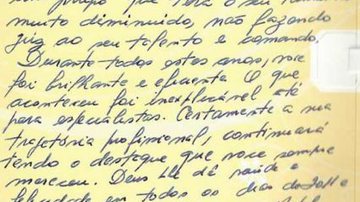 seu
muito diminuido, não fazendo
jus ao seu talento e comando.
Durante todos estes anos, voce
foi brilhante e eficiente O que
aconteceu foi inexplicável até
para especialistas. Certamente a sua
trajetória profissional, continuará
tendo o destaque que voce sempre
mereceu. Deus lhe dê saúde e
felicidade em todos os dias de